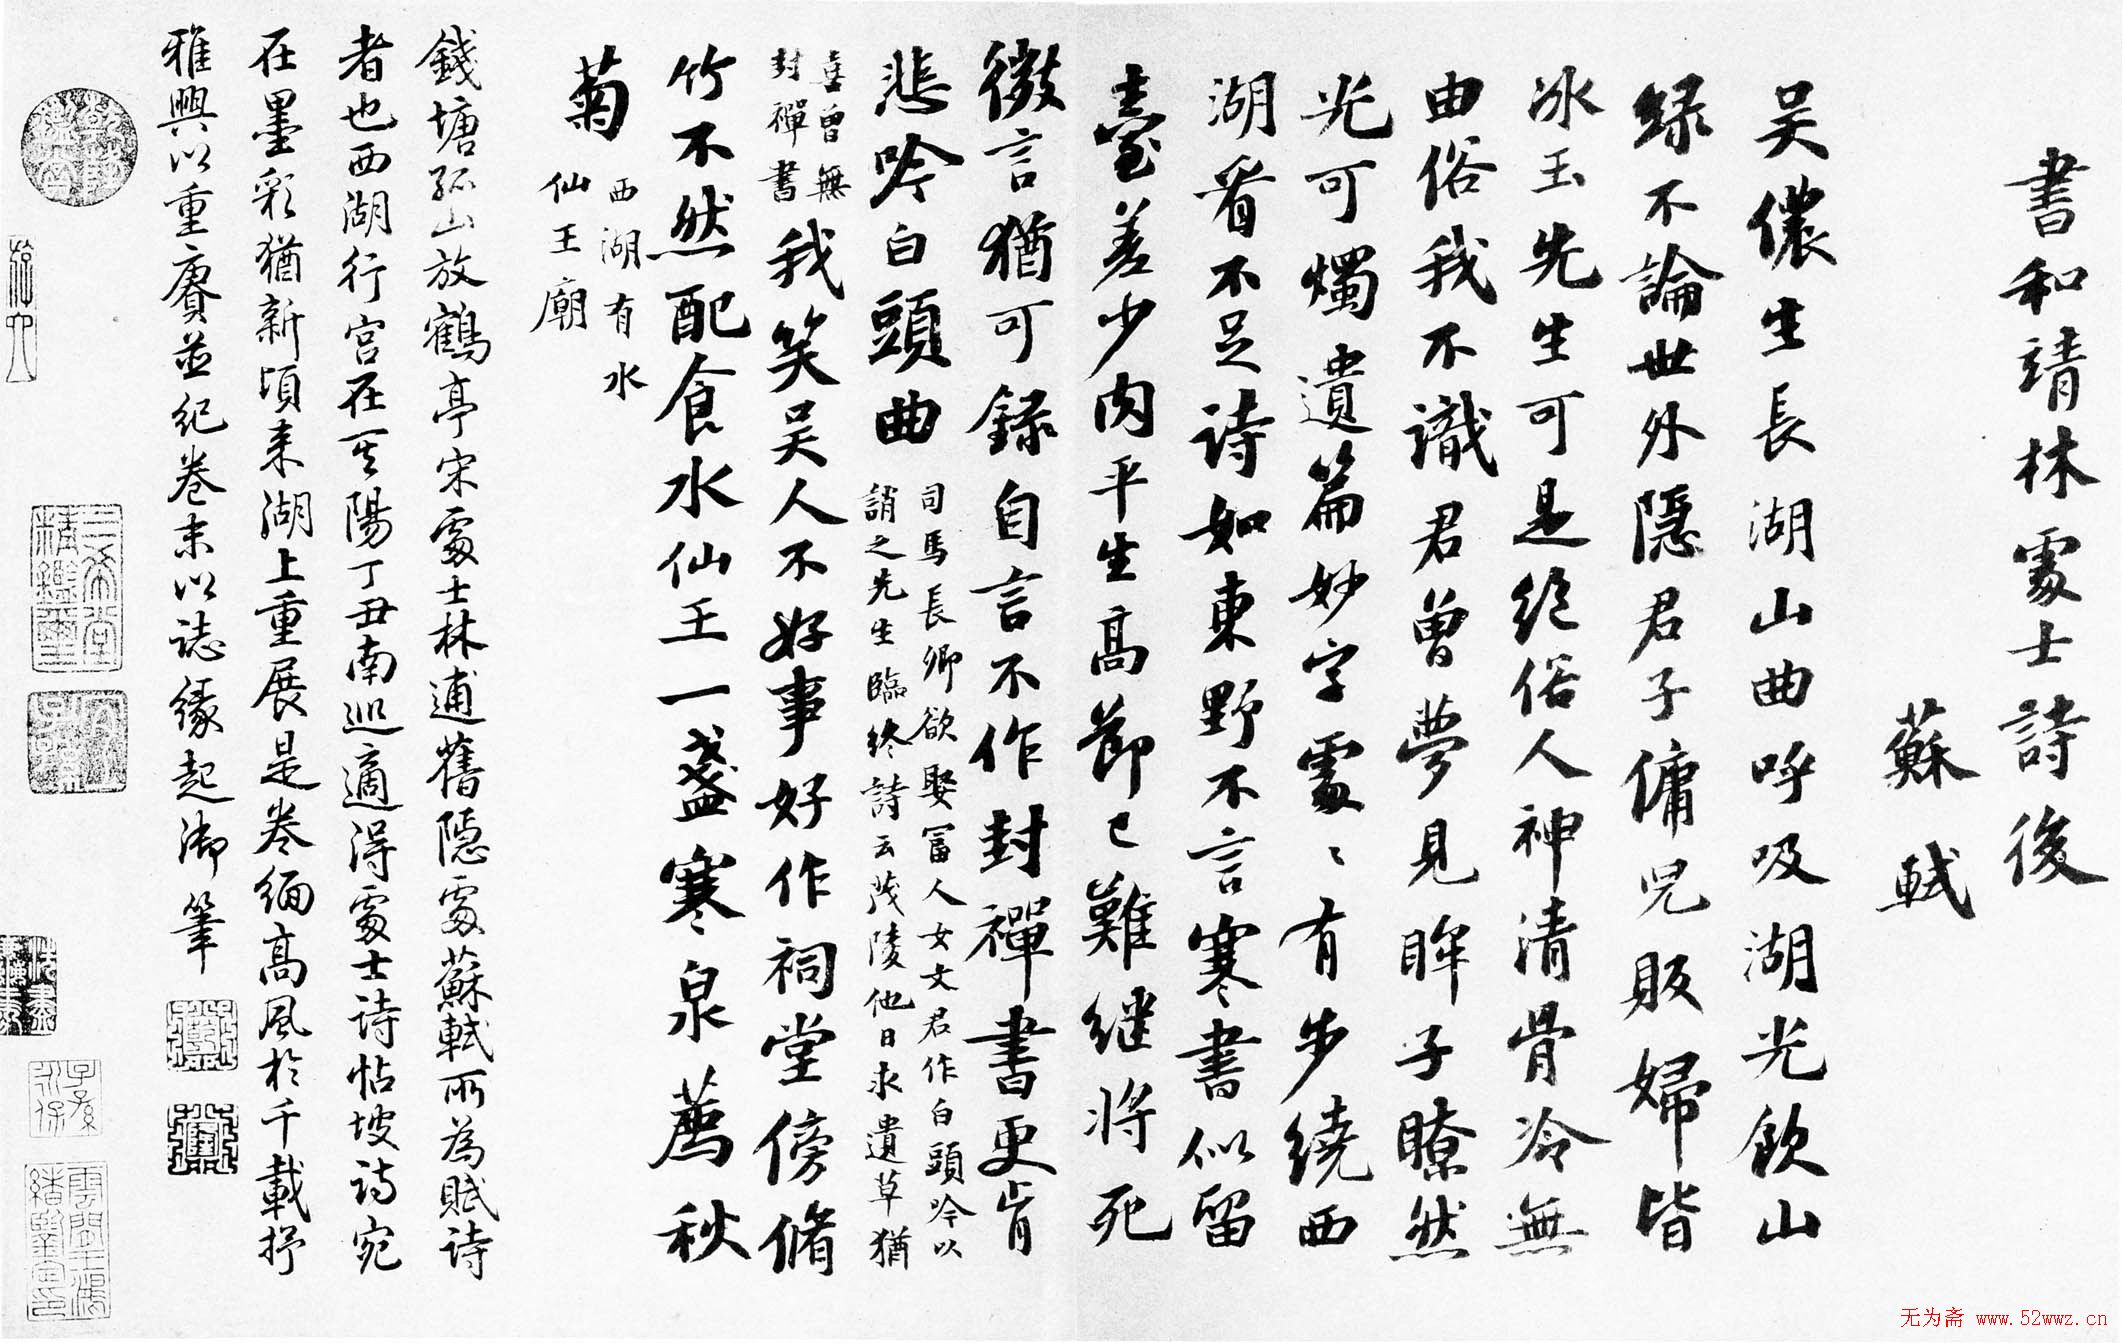 書和靖林處士詩後
蘇軾
吴儂生長湖山曲呼吸湖光飲山
緑不論世外隱君子傭兒販婦皆
冰玉先生可是絕俗人神清骨冷無
由俗我不識君曾夢見眸子瞭然
光可燭遺篇妙字處〻有步繞西
湖看不足詩如東野不言寒書似留
臺差少肉平生高節已難继将死
微言猶可錄自言不作封禪書更肯
悲吟白頭曲
司馬長卿欲娶富人女文君作白頭吟以
誚之先生臨終詩云茂陵他日求遺草猶
喜曾無
封禪書
我笑吴人不好事好作祠堂傍脩
竹不然配食水仙王一盞寒泉薦秋
菊
西湖有水
仙王廟
錢塘孤山放鶴亭宋處士林逋舊隱處蘇軾所為賦詩
者也西湖行宫在其陽丁丑南巡適得處士詩帖坡詩宛
在墨彩猶新頃来湖上重展是卷緬高風於千載抒
雅興以重賡並紀卷末以誌緣起御筆
乾隆
鑑賞
三希堂
精鑑璽
宜子孫
子孫
永保
无为斋 www.52wwz.cn